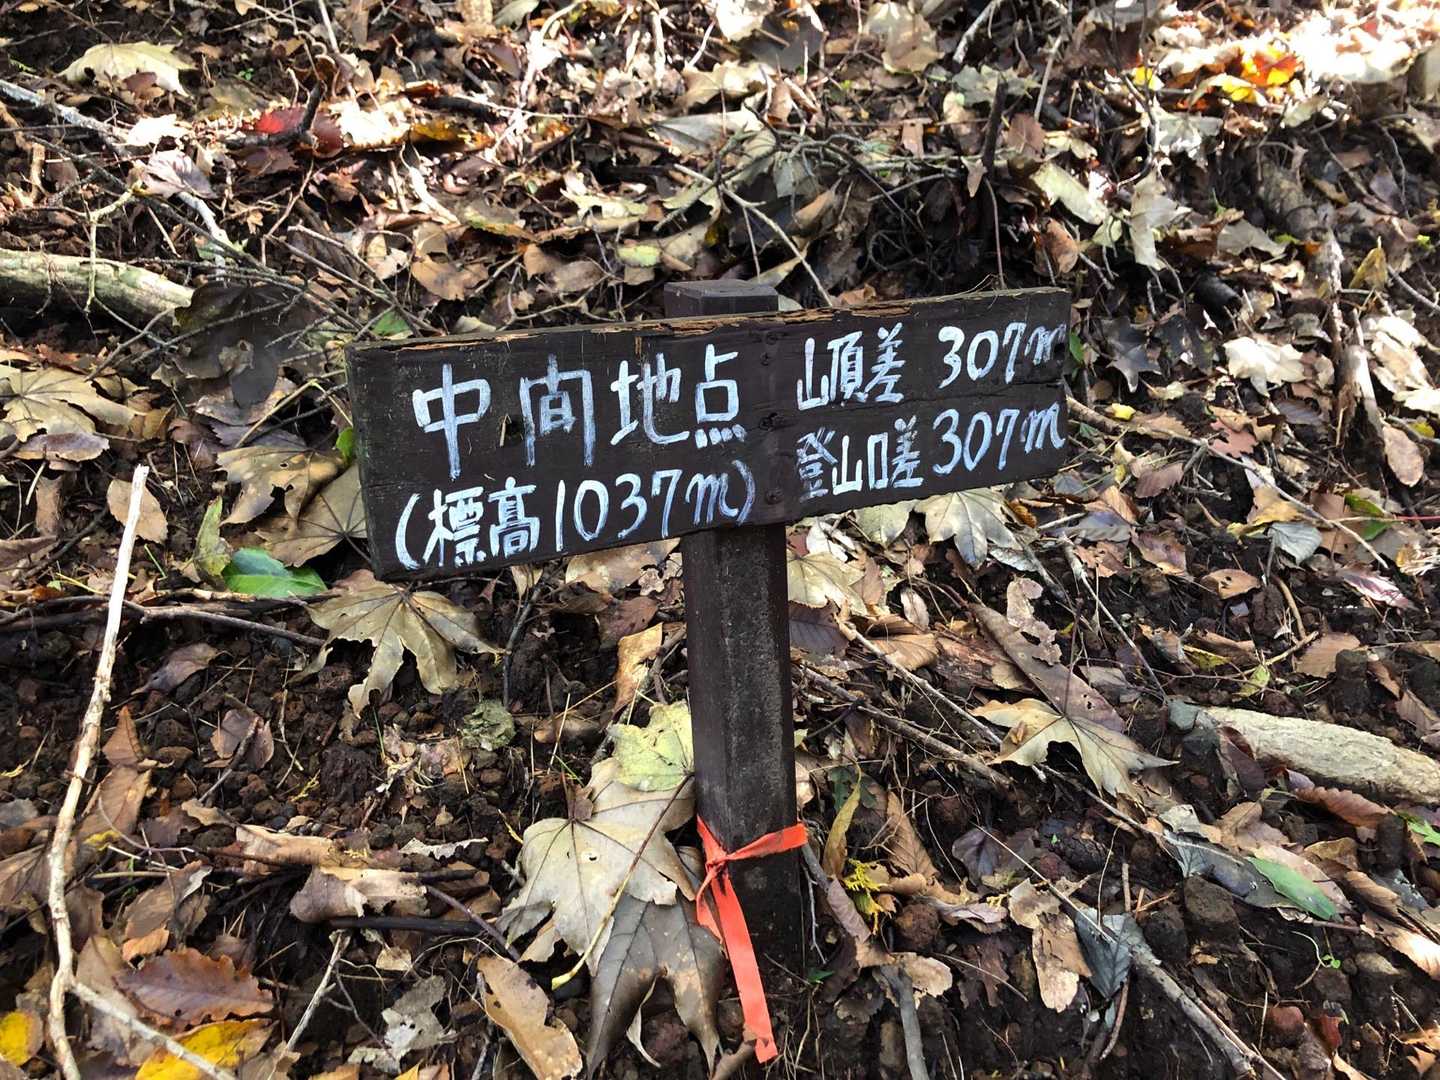 中间地点
(標高1037m)
山頂差 307m
登山口差 307m